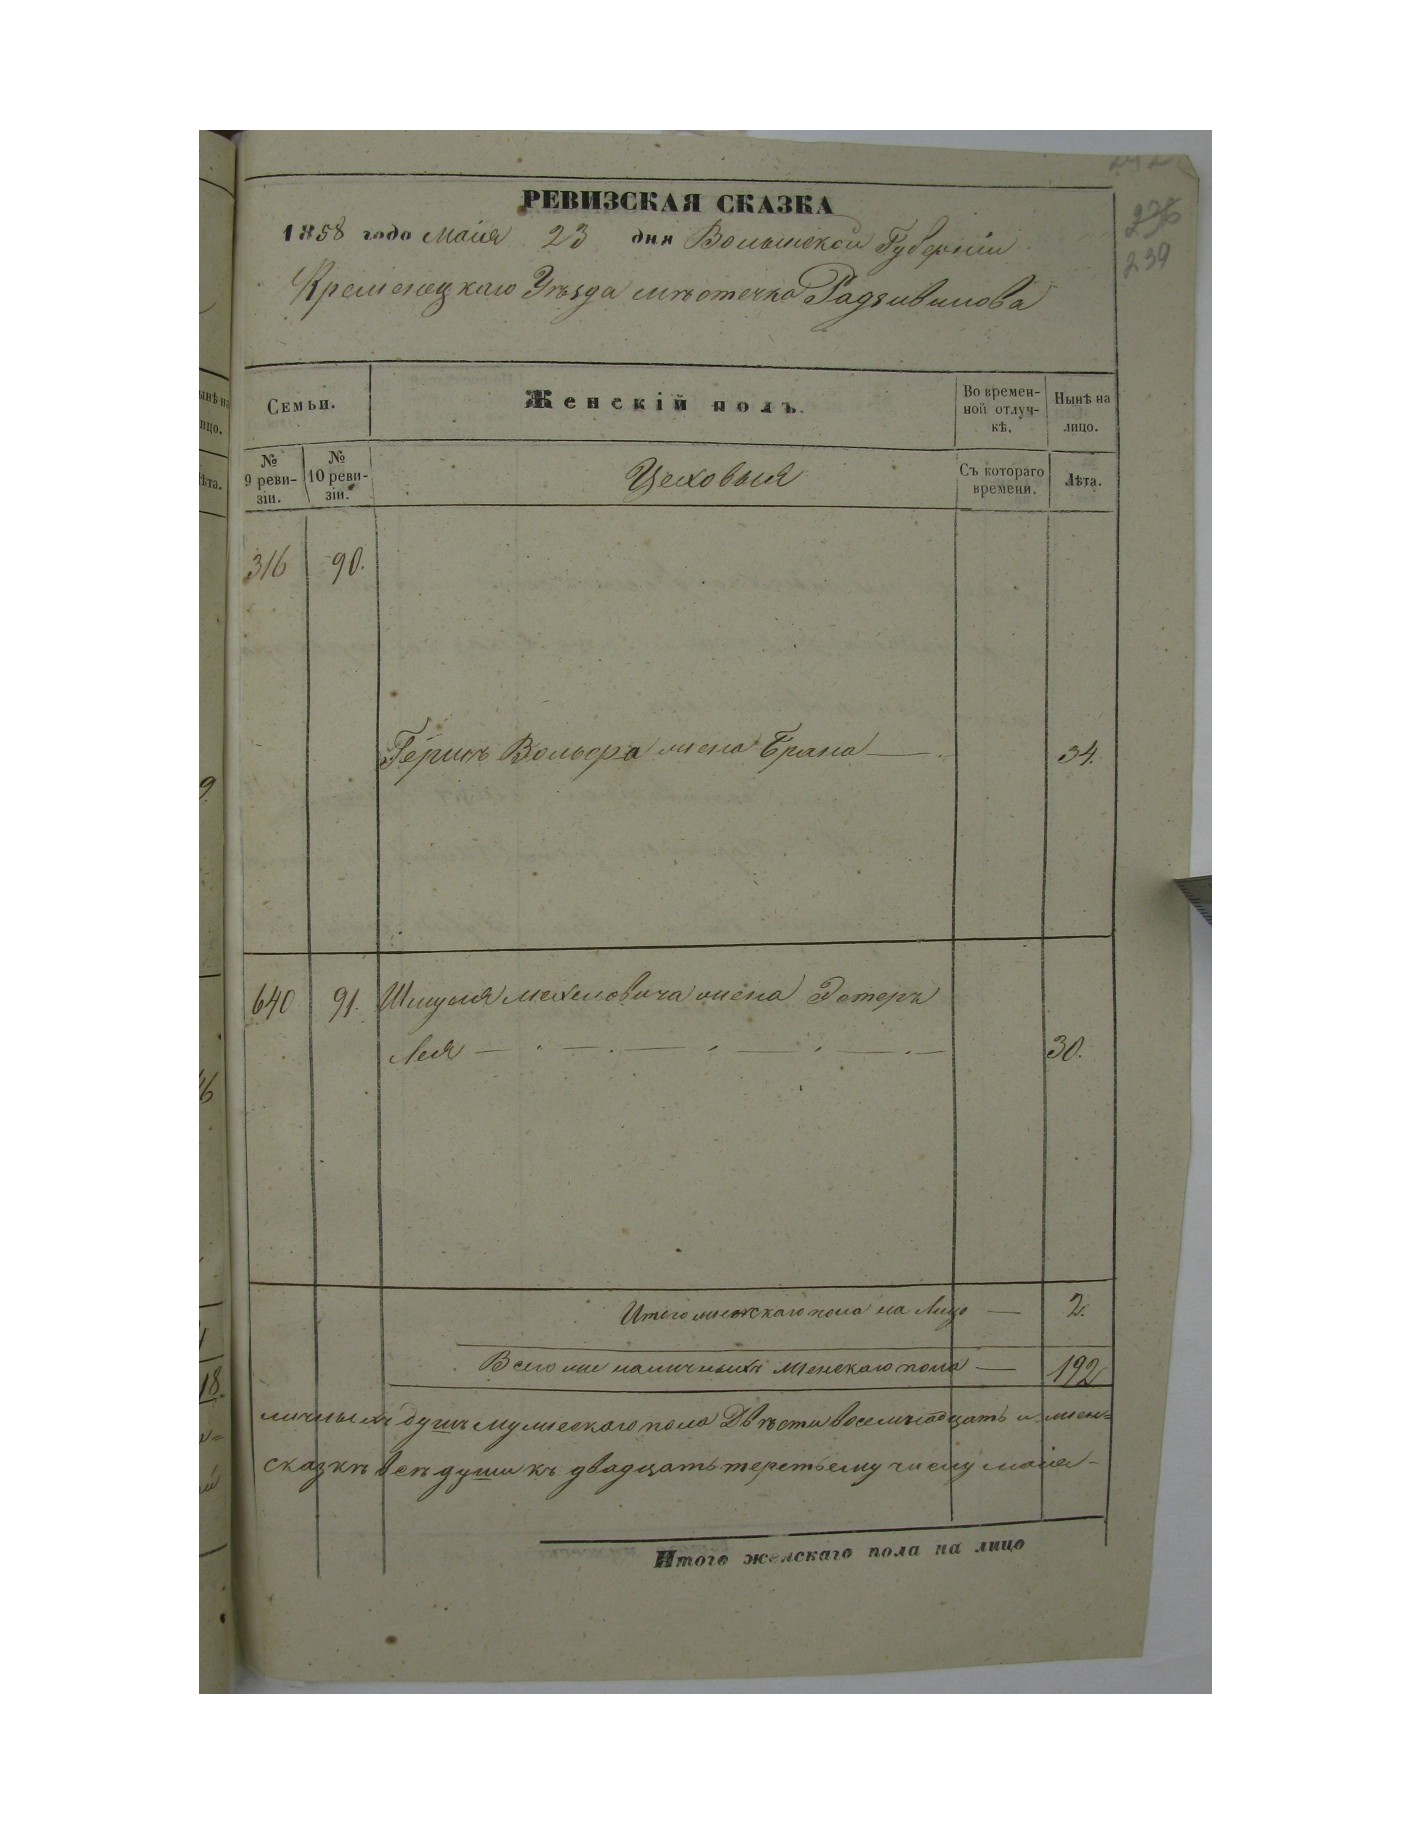 РЕВИЗСКАЯ СКАЗКА
1858 года маія 23 дня Волынской Губерніи
Кременецкаго Уѣзда мѣстечка Радзивилова
236
239
Семьи.
Женскій полъ.
Во времен-
ной отлуч-
кѣ.
Нынѣ на
лицо.
№
9 реви-
зіи.
№
10 реви-
зіи.
Цеховыя
Съ котораго
времени.
Лѣта.
316 90.
Вольфа жена Брана 34.
640 91. Шмуля Мехеловича жена Эстеръ
Лея 30.
Итого женскаго пола на Лицо 2.
Всего наличныхъ женскаго пола 192
личныхъ душъ мужескаго пола Двѣсти восемьнадцать и жен=
сказкѣ всѣ души къ двадцать третьему числу маія
Итого женскаго пола на лицо